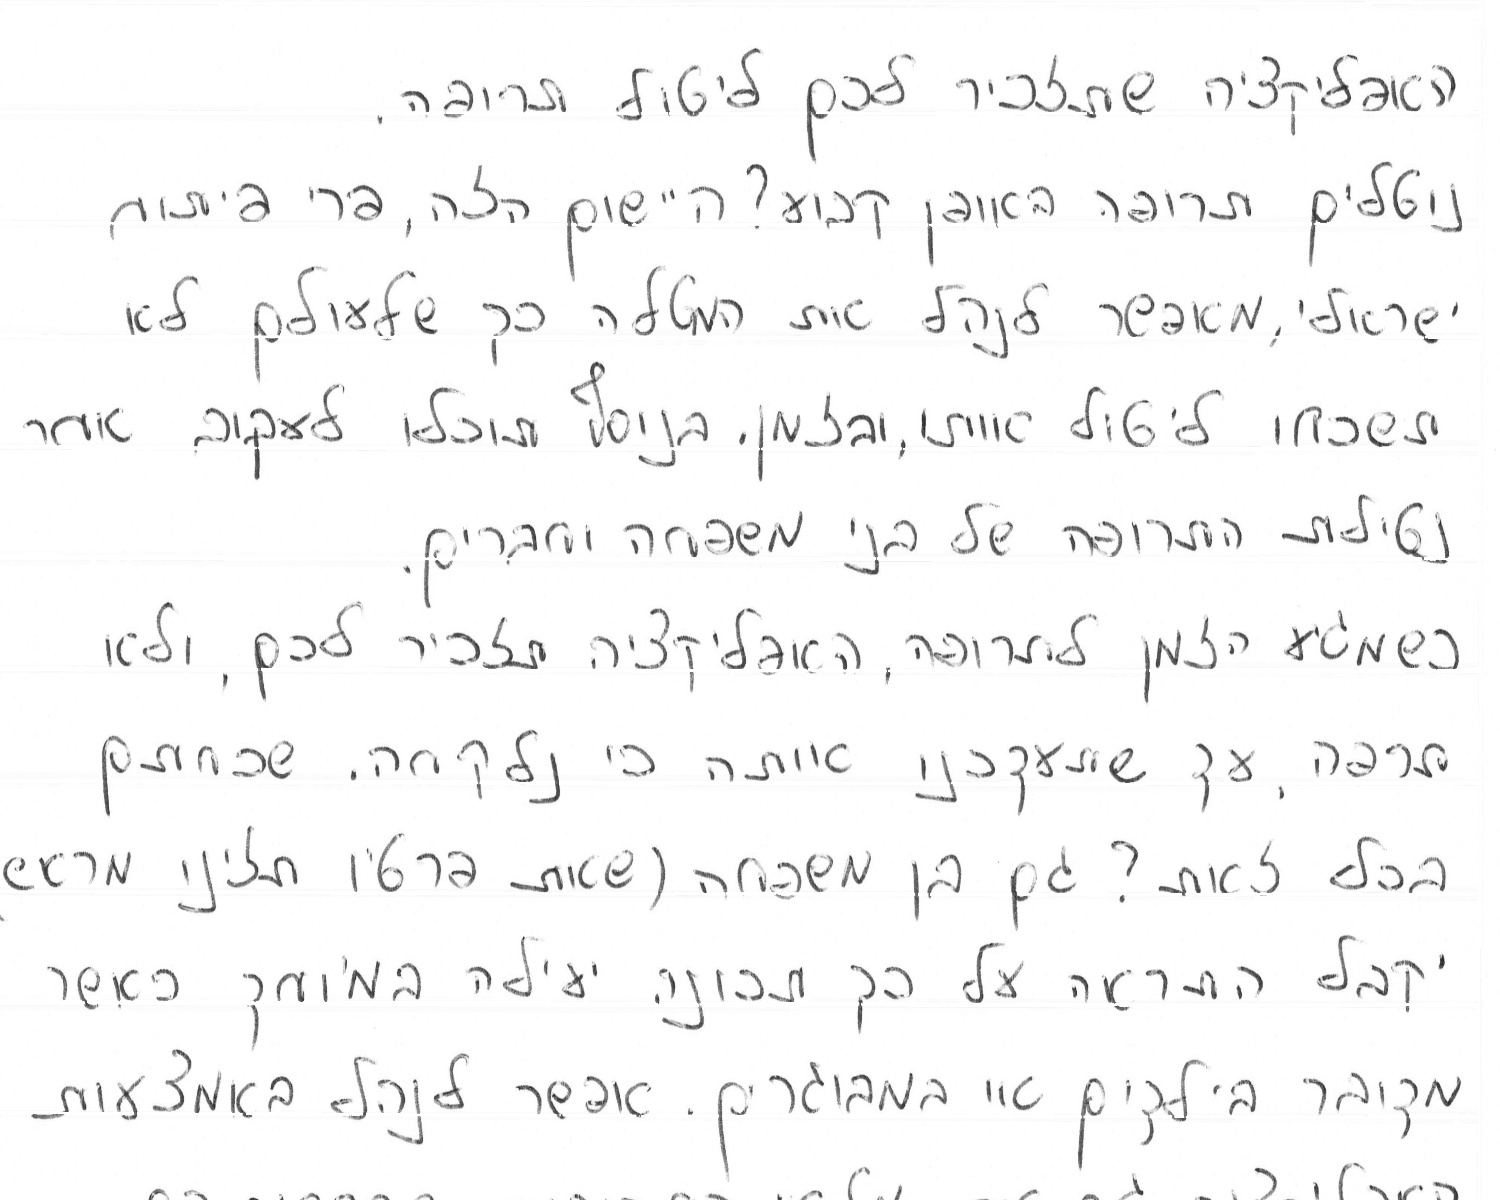 האפליקציה שתזכיר לכם ליטול תרופה.
נוטלים תרופה באופן קבוע? היישום הזה, פרי פיתוח
ישראלי, מאפשר לנהל את המטלה כך שלעולם לא
תשכחו ליטול אותו, ובזמן. בנוסף תוכלו לעקוב אחר
נטילת התרופה של בני משפחה וחברים.
כשמגיע הזמן לתרופה, האפליקציה תזכיר לכם, ולא
תרפה, עד שתעדכנו אותה כי נלקחה. שכחתם
בכל זאת? גם בן משפחה (שאת פרטיו תזינו מראש
יקבל התראה על כך תכונה יעילה במיוחד כאשר
מדובר בילדים או במבוגרים. אפשר לנהל באמצעות